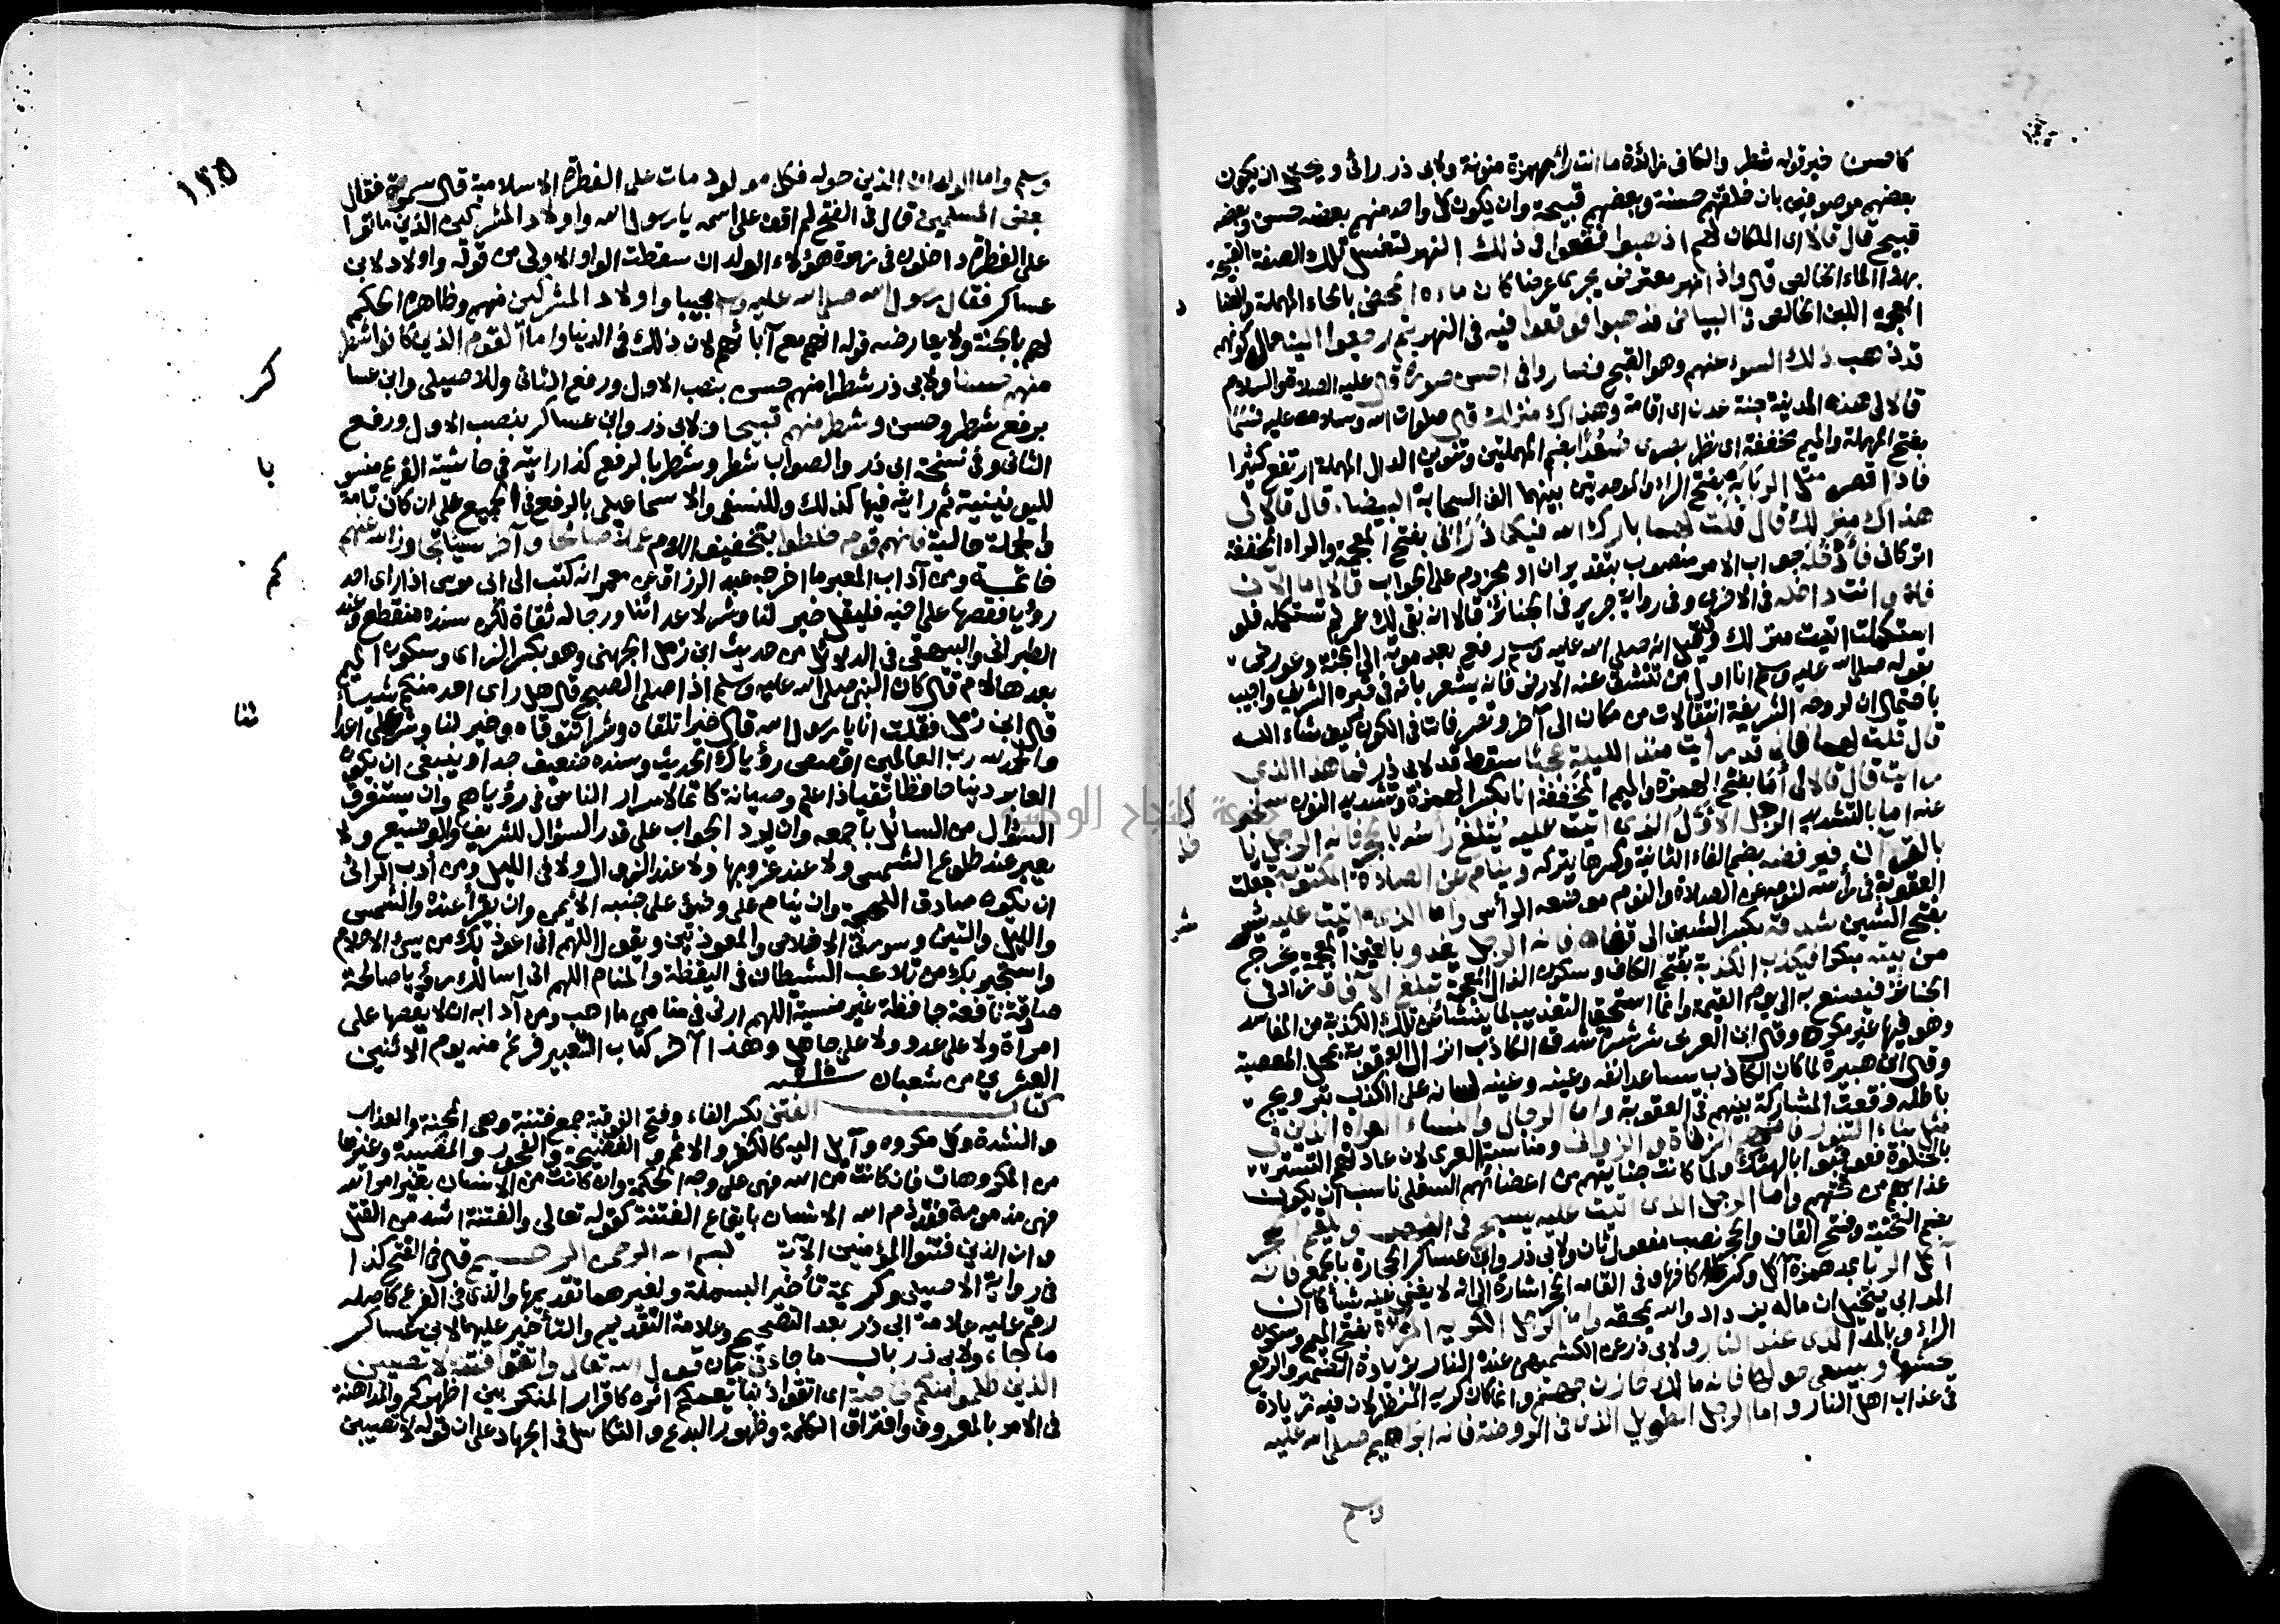 كاحسن خبر قوله شطر والكاف زائدة ما انت رائ بهمزة منونة ولابي ذر رائي و يحتمل ان يكون
بعضهم موصوفين بان خلقتهم حسنة وبعضهم قبيحة وان يكون كل واحد منهم بعضه حسن وبعضه
قبيح قال قالا اي الملكان لهم اذهبوا فقعوا في ذلك النهر لتغسل تلك الصفة القبيحة
بهذا الماء الخالص قال واذا نهر معترض يجري عرضا كان ماءه المحض بالحاء المهملة والضاد
المعجمة اللبن الخالص في البياض فذهبوا فوقعوا فيه في النهر ثم رجعوا الينا حال كونهم
قد ذهب ذلك السوء عنهم وهو القبح فصاروا في احسن صورة قال عليه الصلاة والسلام
قالا لي هذه المدينة جنة عدن اي اقامة وهذاك منزلك قال صلوات الله وسلامه عليه فسما
بفتح المهملة والميم مخففة اي نظر بصري صُعُدًا بضم المهملتين وتنوين الدال المهملة ارتفع كثيرا
فاذا قصر مثل الربابة بفتح الراء والموحدتين بينهما الف السحابة البيضاء قال قالا لي
هذاك منزلك قال قلت لهما بارك الله فيكما ذراني بفتح المعجمة والراء المخففة
اتركاني فأدخله جواب الامر منصوب بتقدير ان او مجزوم على الجواب قالا اما الآن
فلا وانت داخله في الاخرى وفي رواية جرير في الجنائز قالا انه بقي لك عمر لم تستكمله فلو
استكملت اتيت منزلك وقيل انه صلى الله عليه وسلم رفع بعد موته الى الجنة وعورض
بقوله صلى الله عليه وسلم انا اول من تنشق عنه الارض فانه يشعر بانه في قبره الشريف واجيب
باحتمال ان لروحه الشريفة انتقالات من مكان الى آخر وتصرفات في الكون كيف شاء الله
قال قلت لهما فاني قد رايت منذ الليلة عجبًا سقط قد لابي ذر فما هذا الذي
رايت قال قالا لي أمَا بفتح الهمزة والميم المخففة انا بكسر الهمزة وتشديد النون سنخبرك
عنه اما بالتشديد الرجل الاول الذي اتيت عليه يثلغ رأسه بالحجر فانه الرجل يأخذ
بالقرآن فيرفضه بضم الفاء الثانية وكسرها يتركه وينام عن الصلاة المكتوبة جعلت
العقوبة في رأسه لنومه عن الصلاة والنوم موضعه الرأس واما الذي اتيت عليه يشرشر
بفتح الشين شدقه بكسر الشين الى قفاه فانه الرجل يغدو بالغين المعجمة يخرج
من بيته بكرا فيكذب الكذبة بفتح الكاف وسكون الذال المعجمة تبلغ الآفاق زاد في
الجنائز فيصنع به الى يوم القيمة وانما استحق التعذيب لما ينشأ عن تلك الكذبة من المفاسد
وهو فيها غير مكره وقال ابن العربي شرشرة شدق الكاذب انزال العقوبة بمحل المعصية
وقال ابن هبيرة لما كان الكاذب يساعد انفه وعينه وعينه لسانه على الكذب بترويج
باطله وقعت المشاركة بينهم في العقوبة واما الرجال والنساء العراة الذين في
مثل بناء التنور فانهم الزناة والزواني ومناسبة العري لان عادتهم التستر
بالخلوة فعوقبوا بالهتك ولما كانت جنايتهم من اعضائهم السفلى ناسب ان يكون
عذابهم من تحتهم واما الرجل الذي اتيت عليه يسبح في النهر ويلقم الحجر
بضم التحتية وفتح القاف والحجر نصب مفعول ثان ولابي ذر وابن عساكر الحجارة بالجمع فانه
آكل الربا بمد همزة آكل وكسر كافها وفي القامه الحجر اشارة الى انه لا يغني عنه شيأ كما ان
المرابي يتخيل ان ماله يزداد والله يمحقه واما الرجل الكريه المرآة بفتح الميم وسكون
الراء وبالمد الذي عند النار ولابي ذر عن الكشميهني عنده النار بزيادة الضمير والرفع
يحشها ويسعى حولها فانه مالك خازن جهنم وانما كان كريه المنظر لان فيه زيادة
في عذاب اهل النار واما الرجل الطويل الذي في الروضة فانه ابراهيم صلى الله عليه
وسلم
١٣٥
وسلم واما الولدان الذين حوله فكل مولود مات على الفطرة الاسلامية قال سمرة فقال
بعض المسلمين قال في الفتح لم اقف على اسمه يا رسول الله واولاد المشركين الذين ماتوا
على الفطرة داخلون في زمرة هؤلاء الولدان سقطت الواو الاولى من قوله واولاد لابن
عساكر فقال رسول الله صلى الله عليه وسلم مجيبا واولاد المشركين منهم وظاهره الحكم
لهم بالجنة ولا يعارضه قوله انهم مع آبائهم لان ذلك في الدنيا واما القوم الذين كانوا شطر
منهم حسنا ولابي ذر شطرا منهم حسن بنصب الاول ورفع الثاني وللاصيلي وابن عسا
كر
برفع شطر وحسن وشطر منهم قبيحا ولابي ذر وابن عساكر بنصب الاول ورفع
الثاني وفي نسخة ابي ذر والصواب شطر وشطر بالرفع كذا رايته في حاشية الفرع منسو
با
لليونينية ثم رايته فيها كذلك وللنسفي والاسماعيلي بالرفع في الجميع على ان كان تامة
والجملة حالية فانهم قوم خلطوا بتخفيف اللام عملا صالحا وآخر سيئا تجاوز الله عنهم
خاتمة ومن آداب المعبر ما اخرجه عبد الرزاق عن معمر انه كتب الى ابي موسى اذا راى احد
كم
رؤيا فقصها على اخيه فليقل خير لنا وشر لاعدائنا ورجاله ثقاة لكن سنده منقطع وعند
الطبراني والبيهقي في الدلائل من حديث ابن زمل الجهني وهو بكسر الزاي وسكون الميم
بعدها لام قال كان النبي صلى الله عليه وسلم اذا صلى الصبح قال هل راى احد منكم شيئا
قال ابن زمل فقلت انا يا رسول الله قال خيرا تلقاه وشرا تتوقاه وخير لنا وشر على اعدا
ئنا
والحمد لله رب العالمين اقصص رؤياك الحديث وسنده ضعيف جدا وينبغي ان يكون
العابر دينا حافظا تقيا ذا علم وصيانة كاتما لاسرار الناس في رؤياهم وان يستغرق
السؤال من السائل باجمعه وان يرد الجواب على قدر السؤال للشريف والوضيع ولا
يعبر عند طلوع الشمس ولا عند غروبها ولا عند الزوال ولا في الليل ومن أدب الرائي
ان يكون صادق اللهجة وان ينام على وضوء على جنبه الأيمن وان يقرأ عنده والشمس
والليل والتين وسورتي الاخلاص والمعوذتين ويقول اللهم اني اعوذ بك من سيئ الاحلام
واستجير بك من تلاعب الشيطان في اليقظة والمنام اللهم اني اسالك رؤيا صالحة
صادقة نافعة حافظة غير منسية اللهم ارني في منامي ما احب ومن آدابه ان لا يقصها على
امراة ولا على عدو ولا على جاهل وهذا آخر كتاب التعبير فرغ منه يوم الاثنين
العشرين من شعبان
كتاب الفتن بكسر الفاء وفتح الفوقية جمع فتنة وهي المحنة والعذاب
والشدة وكل مكروه وآيل اليه كالكفر والاثم والفضيحة والفجور والمصيبة وغيرها
من المكروهات فان كانت من الله فهي على وجه الحكمة وان كانت من الانسان بغير امر الله
فهي مذمومة فقد ذم الله الانسان بايقاع الفتنة كقوله تعالى والفتنة اشد من القتل
وان الذين فتنوا المؤمنين الآية بسم الله الرحمن الرحيم قال في الفتح كذا
في رواية الاصيلي وكريمة تأخير البسملة ولغيرهما تقديمها والذي في الفرع كاصله
رقم عليه علامة ابي ذر بعد التصحيح وعلامة التقديم والتأخير عليها لابن عساكر
ما جاء ولابي ذر باب ما جاء في بيان قول الله تعالى واتقوا فتنة لا تصيبن
الذين ظلموا منكم خاصة اي اتقوا ذنبا يعمكم اثره كاقرار المنكر بين اظهركم والمداهنة
في الامر بالمعروف وافتراق الكلمة وظهور البدع والتكاسل في الجهاد على ان قوله لا تصيبن
جامعة النجاح الوطنية